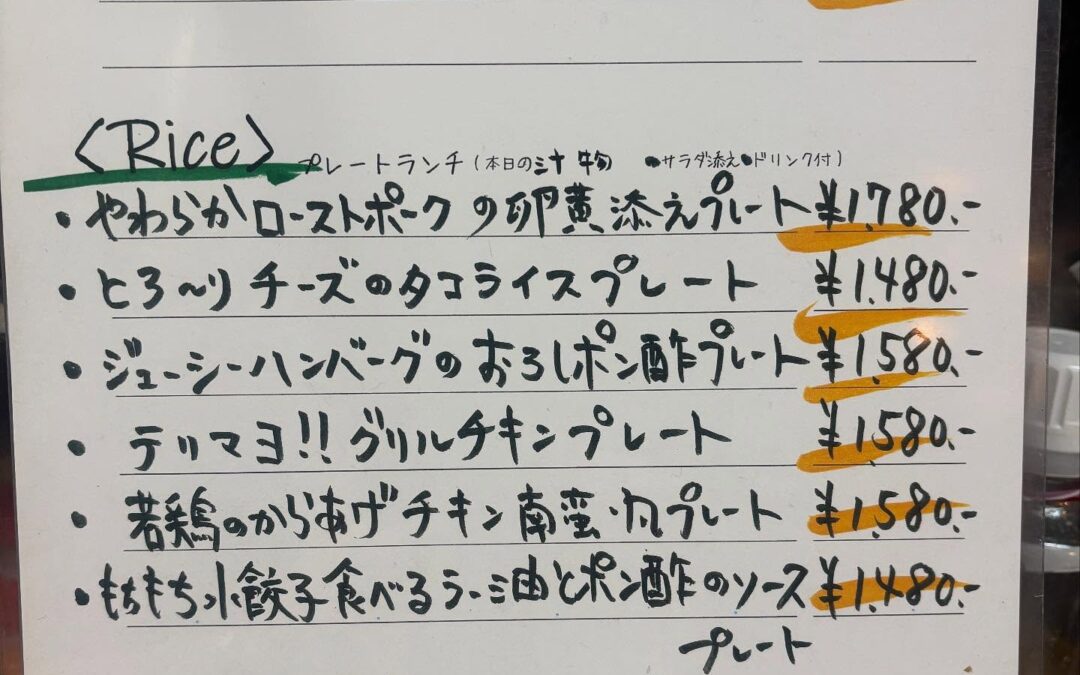 〈Rice〉 プレートランチ(本日の汁物 ●サラダ添え●ドリンク付)
・やわらかローストポークの卵黄添えプレート ¥1,780.-
・とろ〜りチーズのタコライスプレート ¥1,480.-
・ジューシーハンバーグのおろしポン酢プレート ¥1,580.-
・テリマヨ!!グリルチキンプレート ¥1,580.-
・若鶏のからあげチキン南蛮風プレート ¥1,580.-
・もちもち小餃子食べるラー油とポン酢のソース ¥1,480.-
プレート